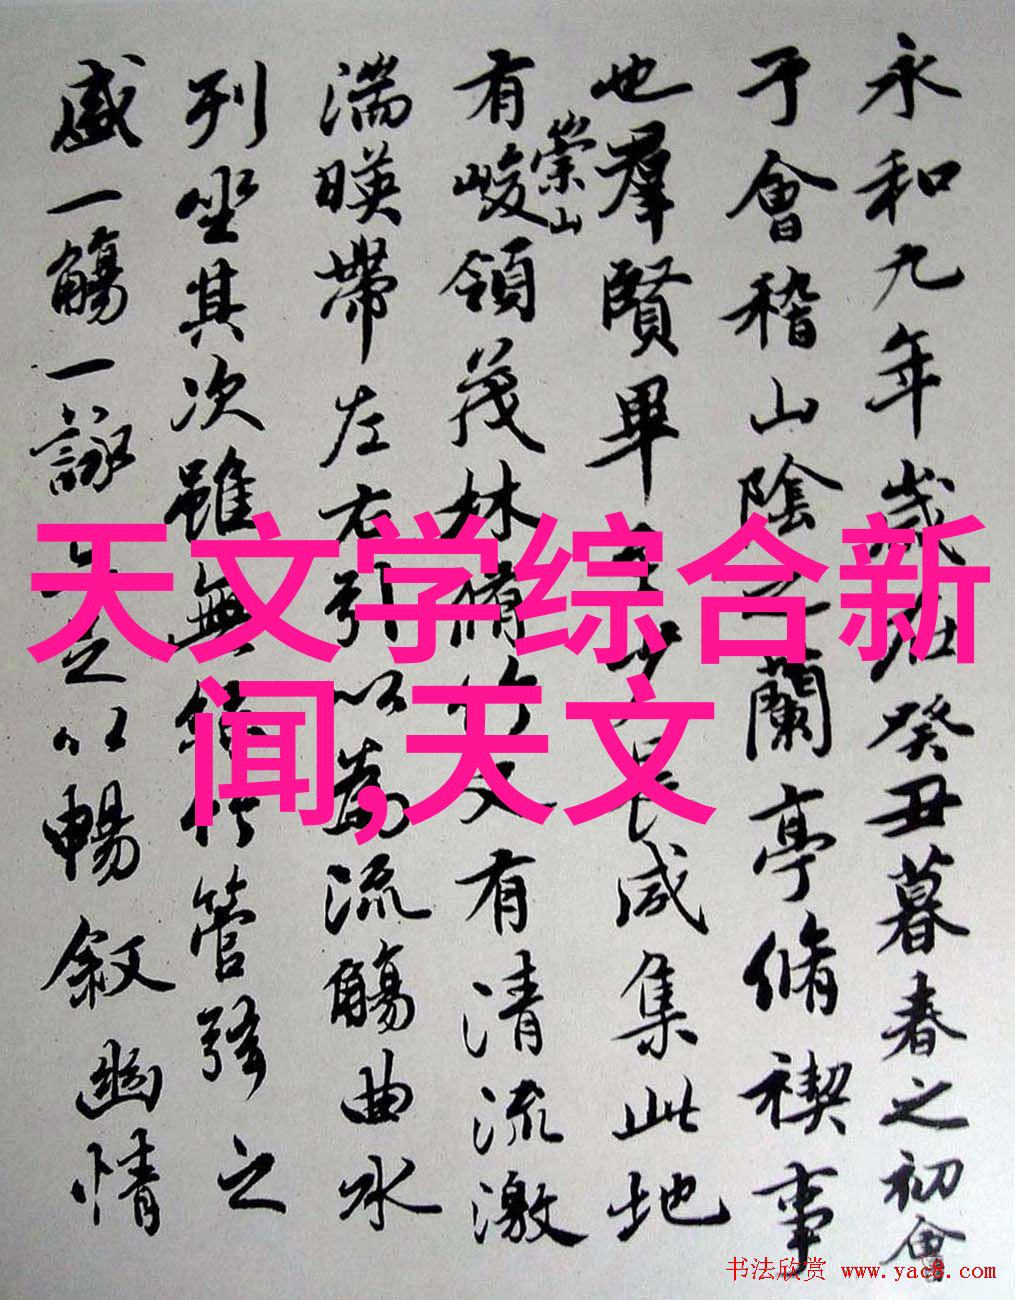 永和九年歲在癸丑暮春之初會
于會稽山陰之蘭亭脩禊事
也羣賢畢至少長咸集此地
有崇山峻領茂林脩竹又有清流激
湍暎帶左右引以為流觴曲水
列坐其次雖無絲竹管弦之
盛一觴一詠足以暢敘幽情
天文学综合新
闻,天文
书法欣赏 www.yac8.com